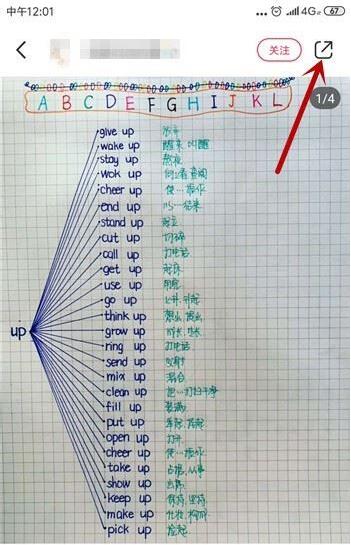 中午12:01 ... 4G 67
关注
A B C D E F G H I J K L
1/4
up
give up 放弃
wake up 醒来,叫醒
stay up 熬夜
wok up 向上看,查阅
cheer up 使…振作
end up 以…结束
stand up 起立
cut up 切碎
call up 打电话
get up 起床
use up 用完
go up 上升,升起
think up 想出,提出
grow up 成长,生长
ring up 打电话
send up 发射
mix up 混合
clean up 把…打扫干净
fill up 装满
put up
open up 打开
cheer up 使…振作
take up 占据,从事
show up 出席
keep up 保持,坚持
make up 化妆,构成
pick up 捡起